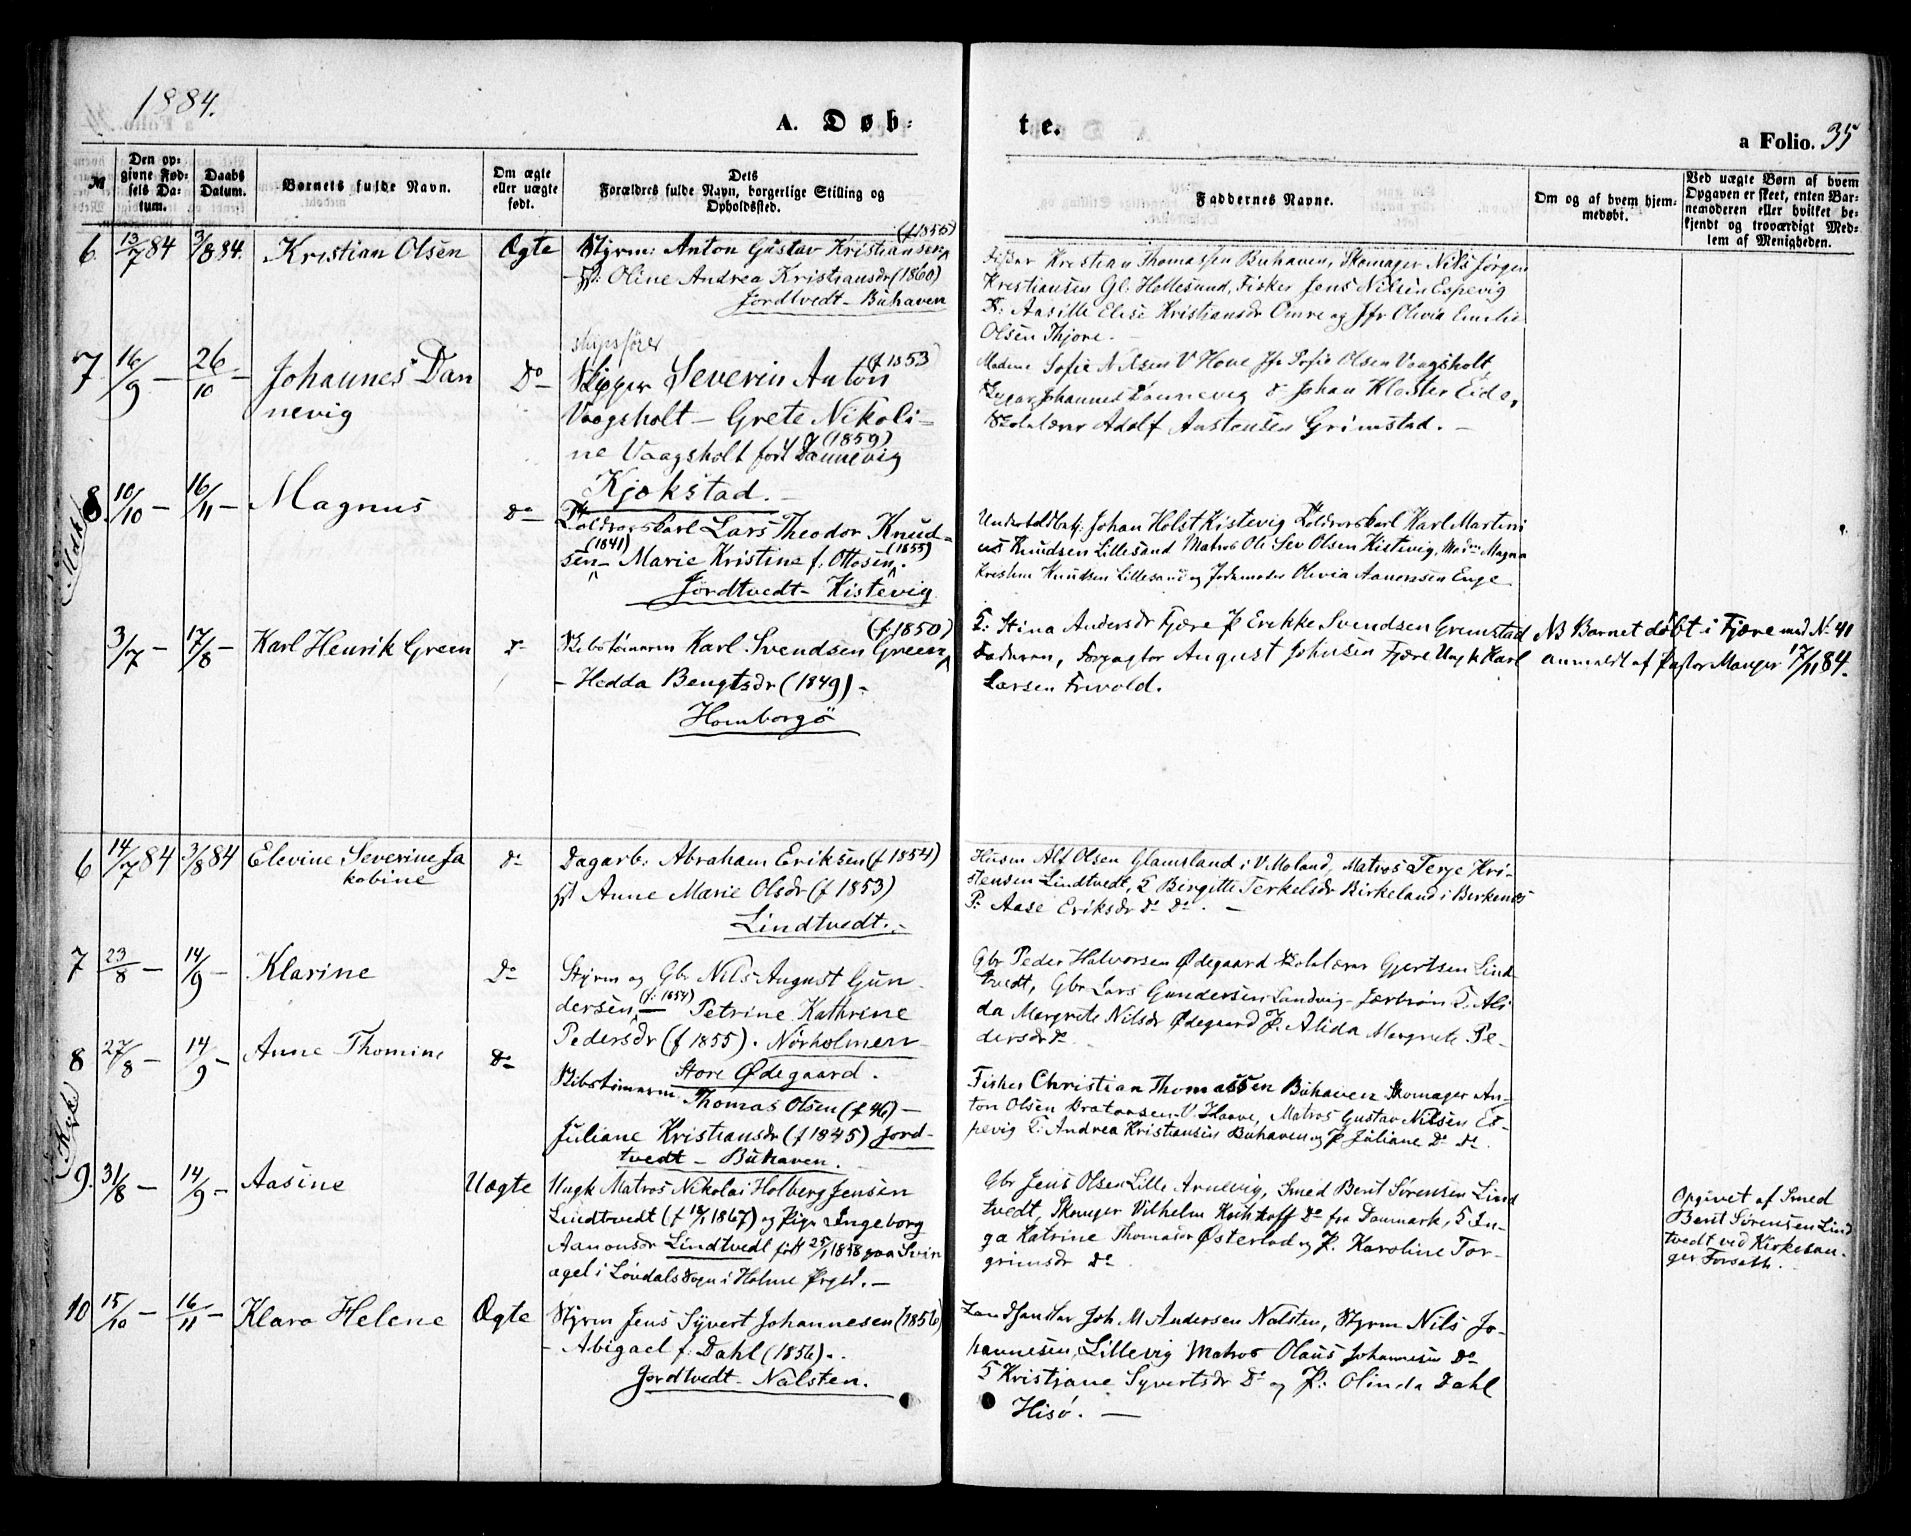 1884.
A. Døb-
te.
a Folio. 35
№
Den op-
givne Fød-
sels Da-
tum.
Daabs
Datum.
Barnets fulde Navn.
Om ægte
eller uægte
født.
Dets
Forældres fulde Navn, borgerlige Stilling og
Opholdssted.
Faddernes Navne.
Om og af hvem hjem-
medøbt.
Ved uægte Børn af hvem
Opgaven er skeet, enten Bar-
nemoderen eller hvilket be-
kjendt og troværdigt Med-
lem af Menigheden.
6. 13/7 84 3/8 84. Kristian Olsen Ægte Styrm: Anton Gustav Kristiansen (f 1855)
Oline Andrea Kristiansdr (1860)
Jordtvedt - Buhaven
Fisker Kristian Thomassen Buhaven, Skomager Nils Jørgen
Kristiansen Gl. Hellesund, Fisker Jens Nilsen Espevig
Aasille Elise Kristiansdr Omre og Jfr Olivia Emilie
Olsen Thjore.
7. 16/9 - 26/10 - Johannes Dan
nevig
Do
skipsfører
Skipper Severin Anton (f 1853)
Vaagsholt - Grete Nikoli-
ne Vaagsholt født Dannevig (1859)
Kjokstad. -
Madme Sofie Nilsen V Hove Jfr Sofie Olsen Vaagsholt,
Johannes Dannevig & Johan Kloster Eide,
Skolelærer Adolf Austensen Grimstad. -
8 10/10 - 16/11 - Magnus Do
Toldropskarl Lars Theodor Knud-
sen (1841) - Marie Kristine f. Ottosen (1855).
Jordtvedt - Kistevig
Johan Holst Kistevig Karl Martini
us Knudsen Lillesand Matros Ole Sev Olsen Kistevig, Madm Magna
Kristine Knudsen Lillesand og Jordemoder Olivia Aanonsen Enge
3/7 - 17/8 - Karl Henrik Green Do
Skibstømmerm Karl Svendsen Green (f. 1850)
- Hedda Bengtsdr (1849) -
Homborgö
Stina Andersdr Fjære P Erikke Svendsen Grimstad
Faderen, Forpagter August Johnsen Fjære Ungk Karl
Larsen Frivold.
NB Barnet døbt i Fjære med № 41
anmeldt af Pastor Manger 17/11 84.
6 14/7 84 3/8 84 Elevine Severine Ja
kobine
Do
Dagarb: Abraham Eriksen (f 1854)
Anne Marie Olsdr (f 1853)
Lindtvedt. -
Husm Alf Olsen Glamsland i V. Moland, Matros Terje Kri-
stensen Lindtvedt, Birgitte Terkelsdr Birkeland i Birkenes
P. Aase Eriksdr Do Do. -
7 23/8 - 14/9 - Klarine Do
Styrm og Gbr Nils August Gun-
dersen (f. 1854) - Petrine Kathrine
Pedersdr (f 1855). Nørholmen
Store Ødegaard.
Gbr Peder Halvorsen Ødegaard Skolelærer Gjertsen Lind
tvedt, Gbr Lars Gundersen Landvig, Ali
da Margrete Nilsdr Ødegaard P. Alida Margrete Pe-
dersdr Do.
8 27/8 - 14/9 - Anne Thomine Do
Skibstömmerm
Thomas Olsen (f 46) -
Juliane Kristiansdr (f 1845) Jord-
tvedt - Buhaven.
Fisker Christian Thomassen Buhaven Skomager An-
ton Olsen V. Haave, Matros Gustav Nilsen Es-
pevig Andrea Kristiansen Buhaven og P Juliane Do Do.
9. 31/8 - 14/9 - Aasine Uægte
Ungk Matros Nikolai Holberg Jensen
Lindtvedt (f 1867) og Pige Ingeborg
Aanonsdr Lindtvedt født 25/1 1858 paa Svin
agel i Løvdals Sogn i Holme Prgjld. -
Gbr Jens Olsen Lille Arnevig, Smed Berit Sørensen Lind
tvedt, Skomager Vilhelm Do fra Danmark, In-
ga Katrine Thomasdr Østerhod og P. Karoline Tor-
grimsdr Do
Opgivet af Smed
Berit Sørensen Lind
tvedt ved Kirkesan-
ger Forsath.
10 15/10 - 16/11 - Klara Helene Ægte
Styrm Jens Syvert Johannesen (1856)
- Abigael f. Dahl (1856).
Jordtvedt - Nalsten.
Joh. M Andersen Nalsten, Styrm Nils Jo-
hannesen, Lillevig Matros Olaus Johannesen Do
Kristiane Syvertsdr Do og P: Olinda Dahl
Hisø. -